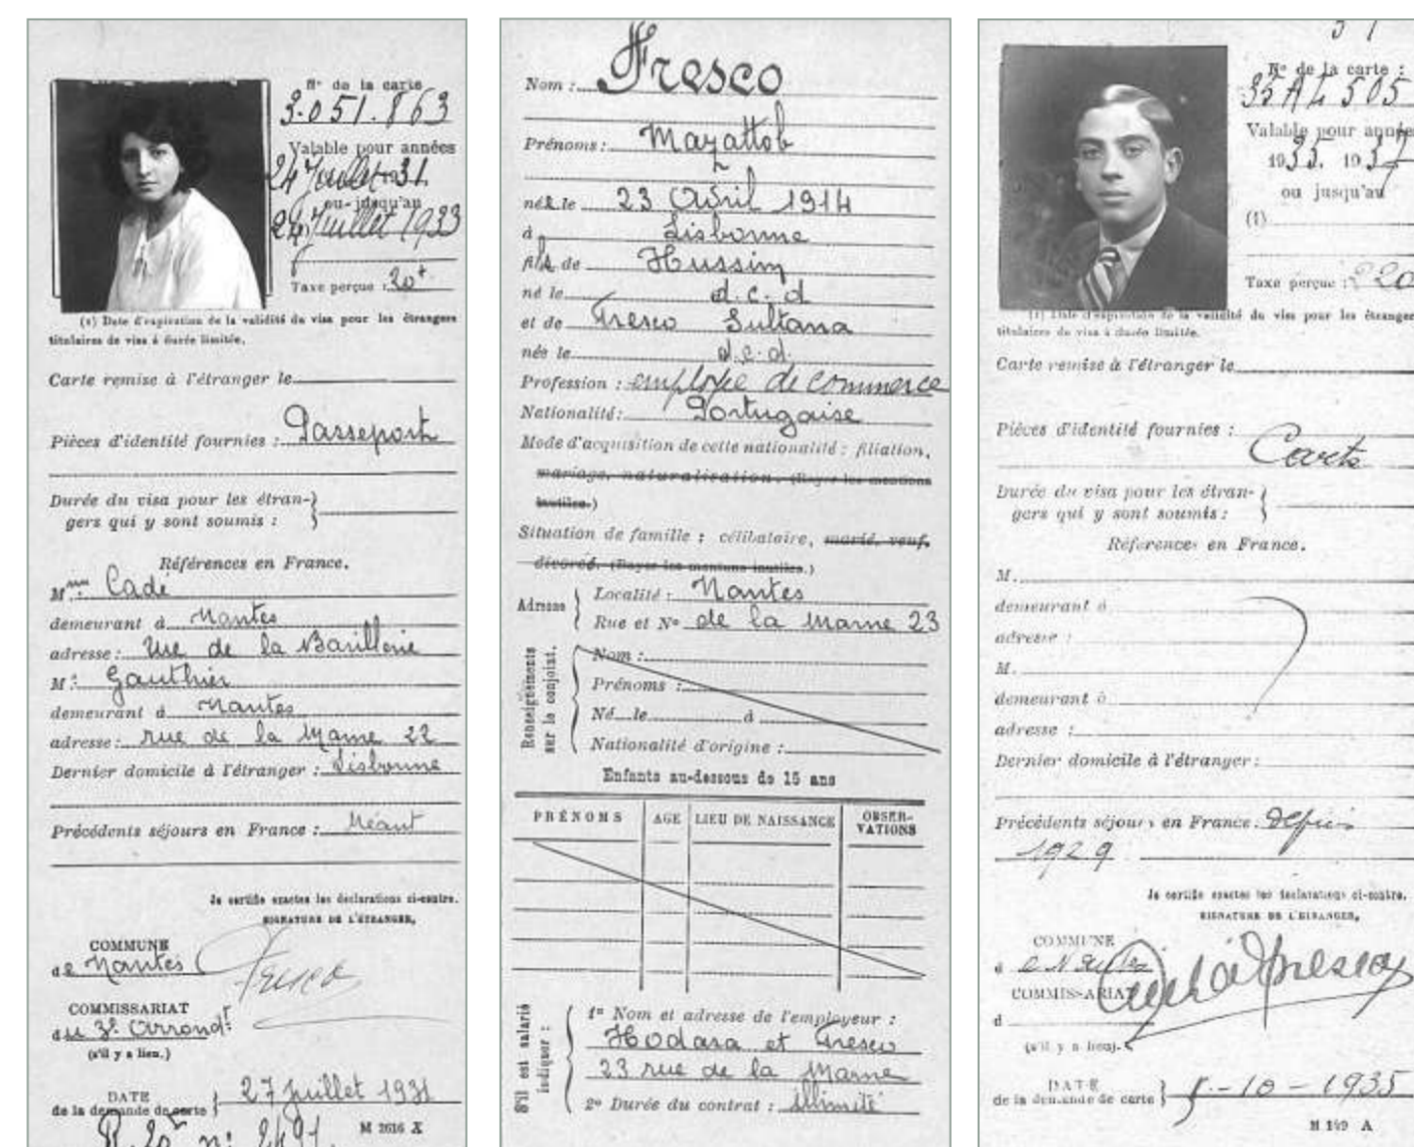 No de la carte
3.051.863
Valable pour années
24 Juillet 1931
ou jusqu'au
24 Juillet 1933
Taxe perçue : 20+
(1) Date d'expiration de la validité du visa pour les étrangers
titulaires de visa à durée limitée.
Carte remise à l'étranger le
Pièces d'identité fournies : Passeport
Durée du visa pour les étran-
gers qui y sont soumis :
Références en France.
Mme Cadé
demeurant à Nantes
adresse : rue de la Barillerie
Mr Gauthier
demeurant à Nantes
adresse : rue de la Marne 22
Dernier domicile à l'étranger : Lisbonne
Précédents séjours en France : Néant
Je certifie exactes les déclarations ci-contre.
SIGNATURE DE L'ÉTRANGER,
COMMUNE
de Nantes
Fresco
COMMISSARIAT
du 3e Arrondt
(s'il y a lieu.)
DATE
de la demande de carte
27 Juillet 1931
M 2616 X
Nom : Fresco
Prénoms : Mazaltob
née le 23 Avril 1914
à Lisbonne
fille de Hussim
né le d.c.d
et de Fresco Sultana
née le d.c.d.
Profession : employée de commerce
Nationalité : Portugaise
Mode d'acquisition de cette nationalité : filiation,
mariage, naturalisation. (Rayer les mentions
inutiles.)
Situation de famille : célibataire, marié, veuf,
divorcé. (Rayer les mentions inutiles.)
Adresse
Localité : Nantes
Rue et No de la Marne 23
Renseignements
sur le conjoint.
Nom :
Prénoms :
Né le à
Nationalité d'origine :
Enfants au-dessous de 15 ans
PRÉNOMS AGE LIEU DE NAISSANCE OBSER-
VATIONS
S'il est salarié
indiquer :
1o Nom et adresse de l'employeur :
Hodara et Fresco
23 rue de la Marne
2o Durée du contrat : illimité
No de la carte :
35AL505
Valable pour années
1935. 1937
ou jusqu'au
(1)
Taxe perçue : 220
(1) Date d'expiration de la validité du visa pour les étranger
titulaires de visa à durée limitée.
Carte remise à l'étranger le
Pièces d'identité fournies :
Carte
Durée du visa pour les étran-
gers qui y sont soumis :
Références en France.
M.
demeurant à
adresse :
M.
demeurant à
adresse :
Dernier domicile à l'étranger :
Précédents séjours en France : depuis
1929
Je certifie exactes les déclarations ci-contre.
SIGNATURE DE L'ÉTRANGER,
COMMUNE
de Nantes
COMMISSARIAT
d
Fresco
(s'il y a lieu).
DATE
de la demande de carte
8-10-1935
M 149 A